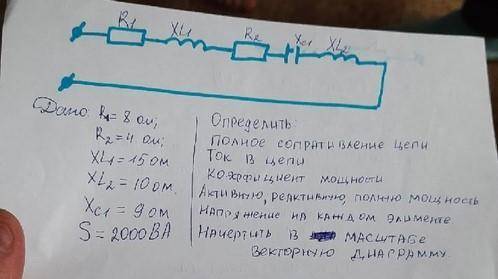 R1 XL1 R2 Xc1 XL2
Дано: R1 = 8 ом;
R2 = 4 ом;
XL1 = 15 ом
XL2 = 10 ом.
Xc1 = 9 ом
S = 2000 ВА
Определить:
Полное сопративление цепи
Ток в цепи
Коэффициент мощности
Активную, реактивную, полную мощность
Напряжение на каждом элементе
Начертить в масштабе
векторную диаграмму.